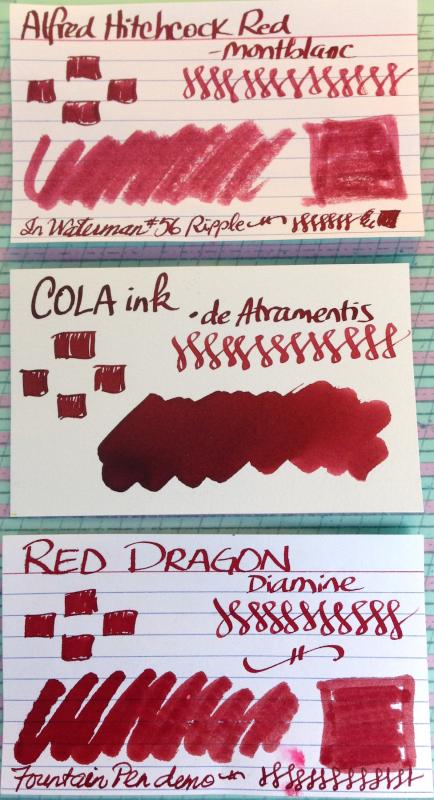 Alfred Hitchcock Red
-montblanc
In Waterman #56 Ripple
COLA ink
• de Atramentis
RED DRAGON
Diamine
Fountain Pen demo